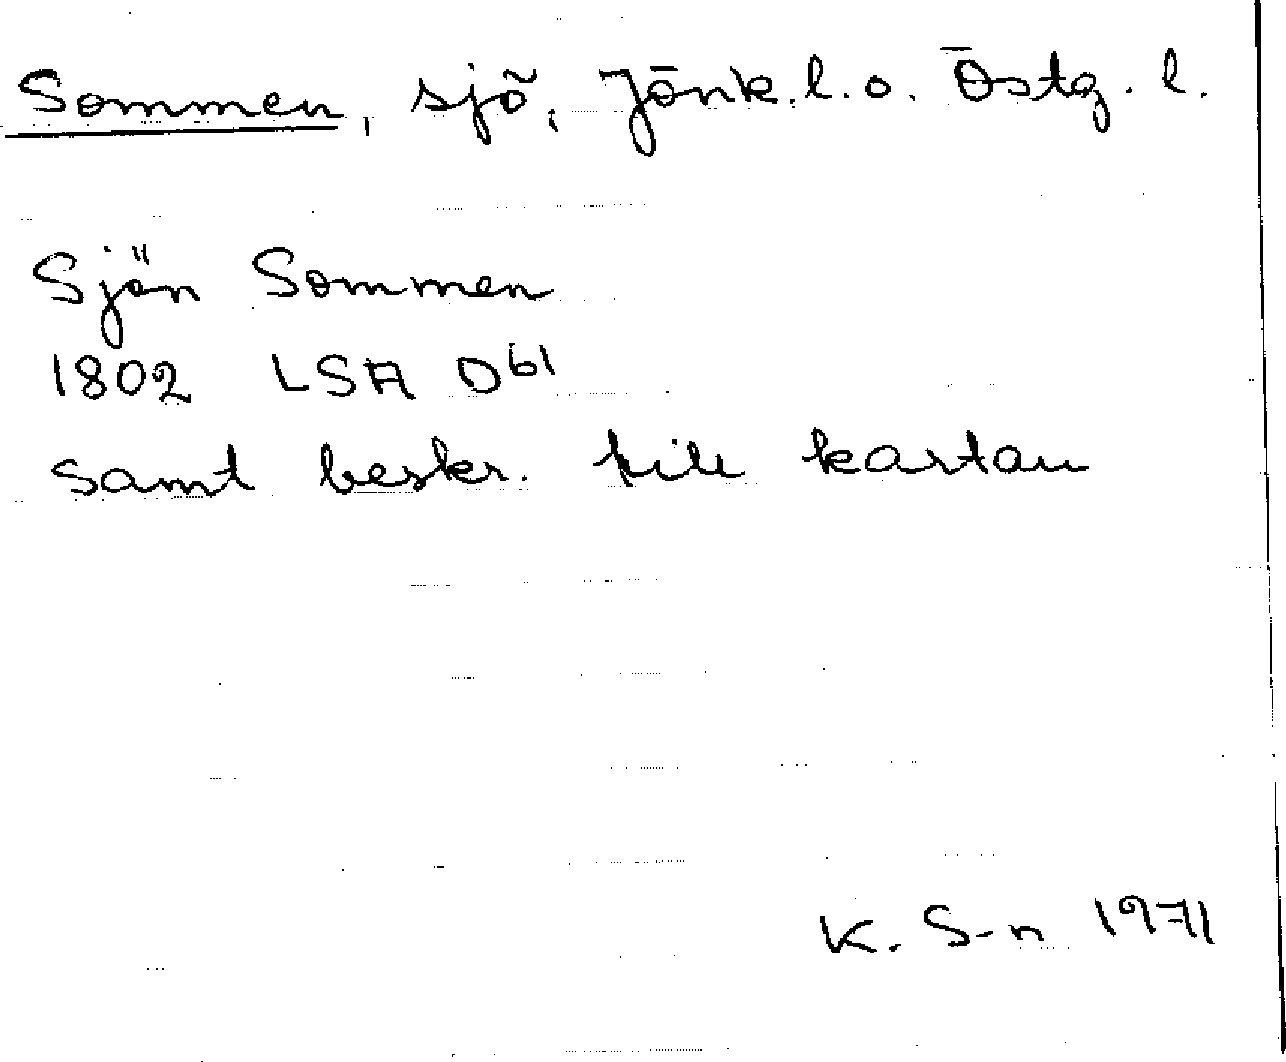 Sommen, sjö, Jönk.l.o. Östg. l.
Sjön Sommen
1802 LSA D61
samt beskr. till kartan
K. S-n 1971